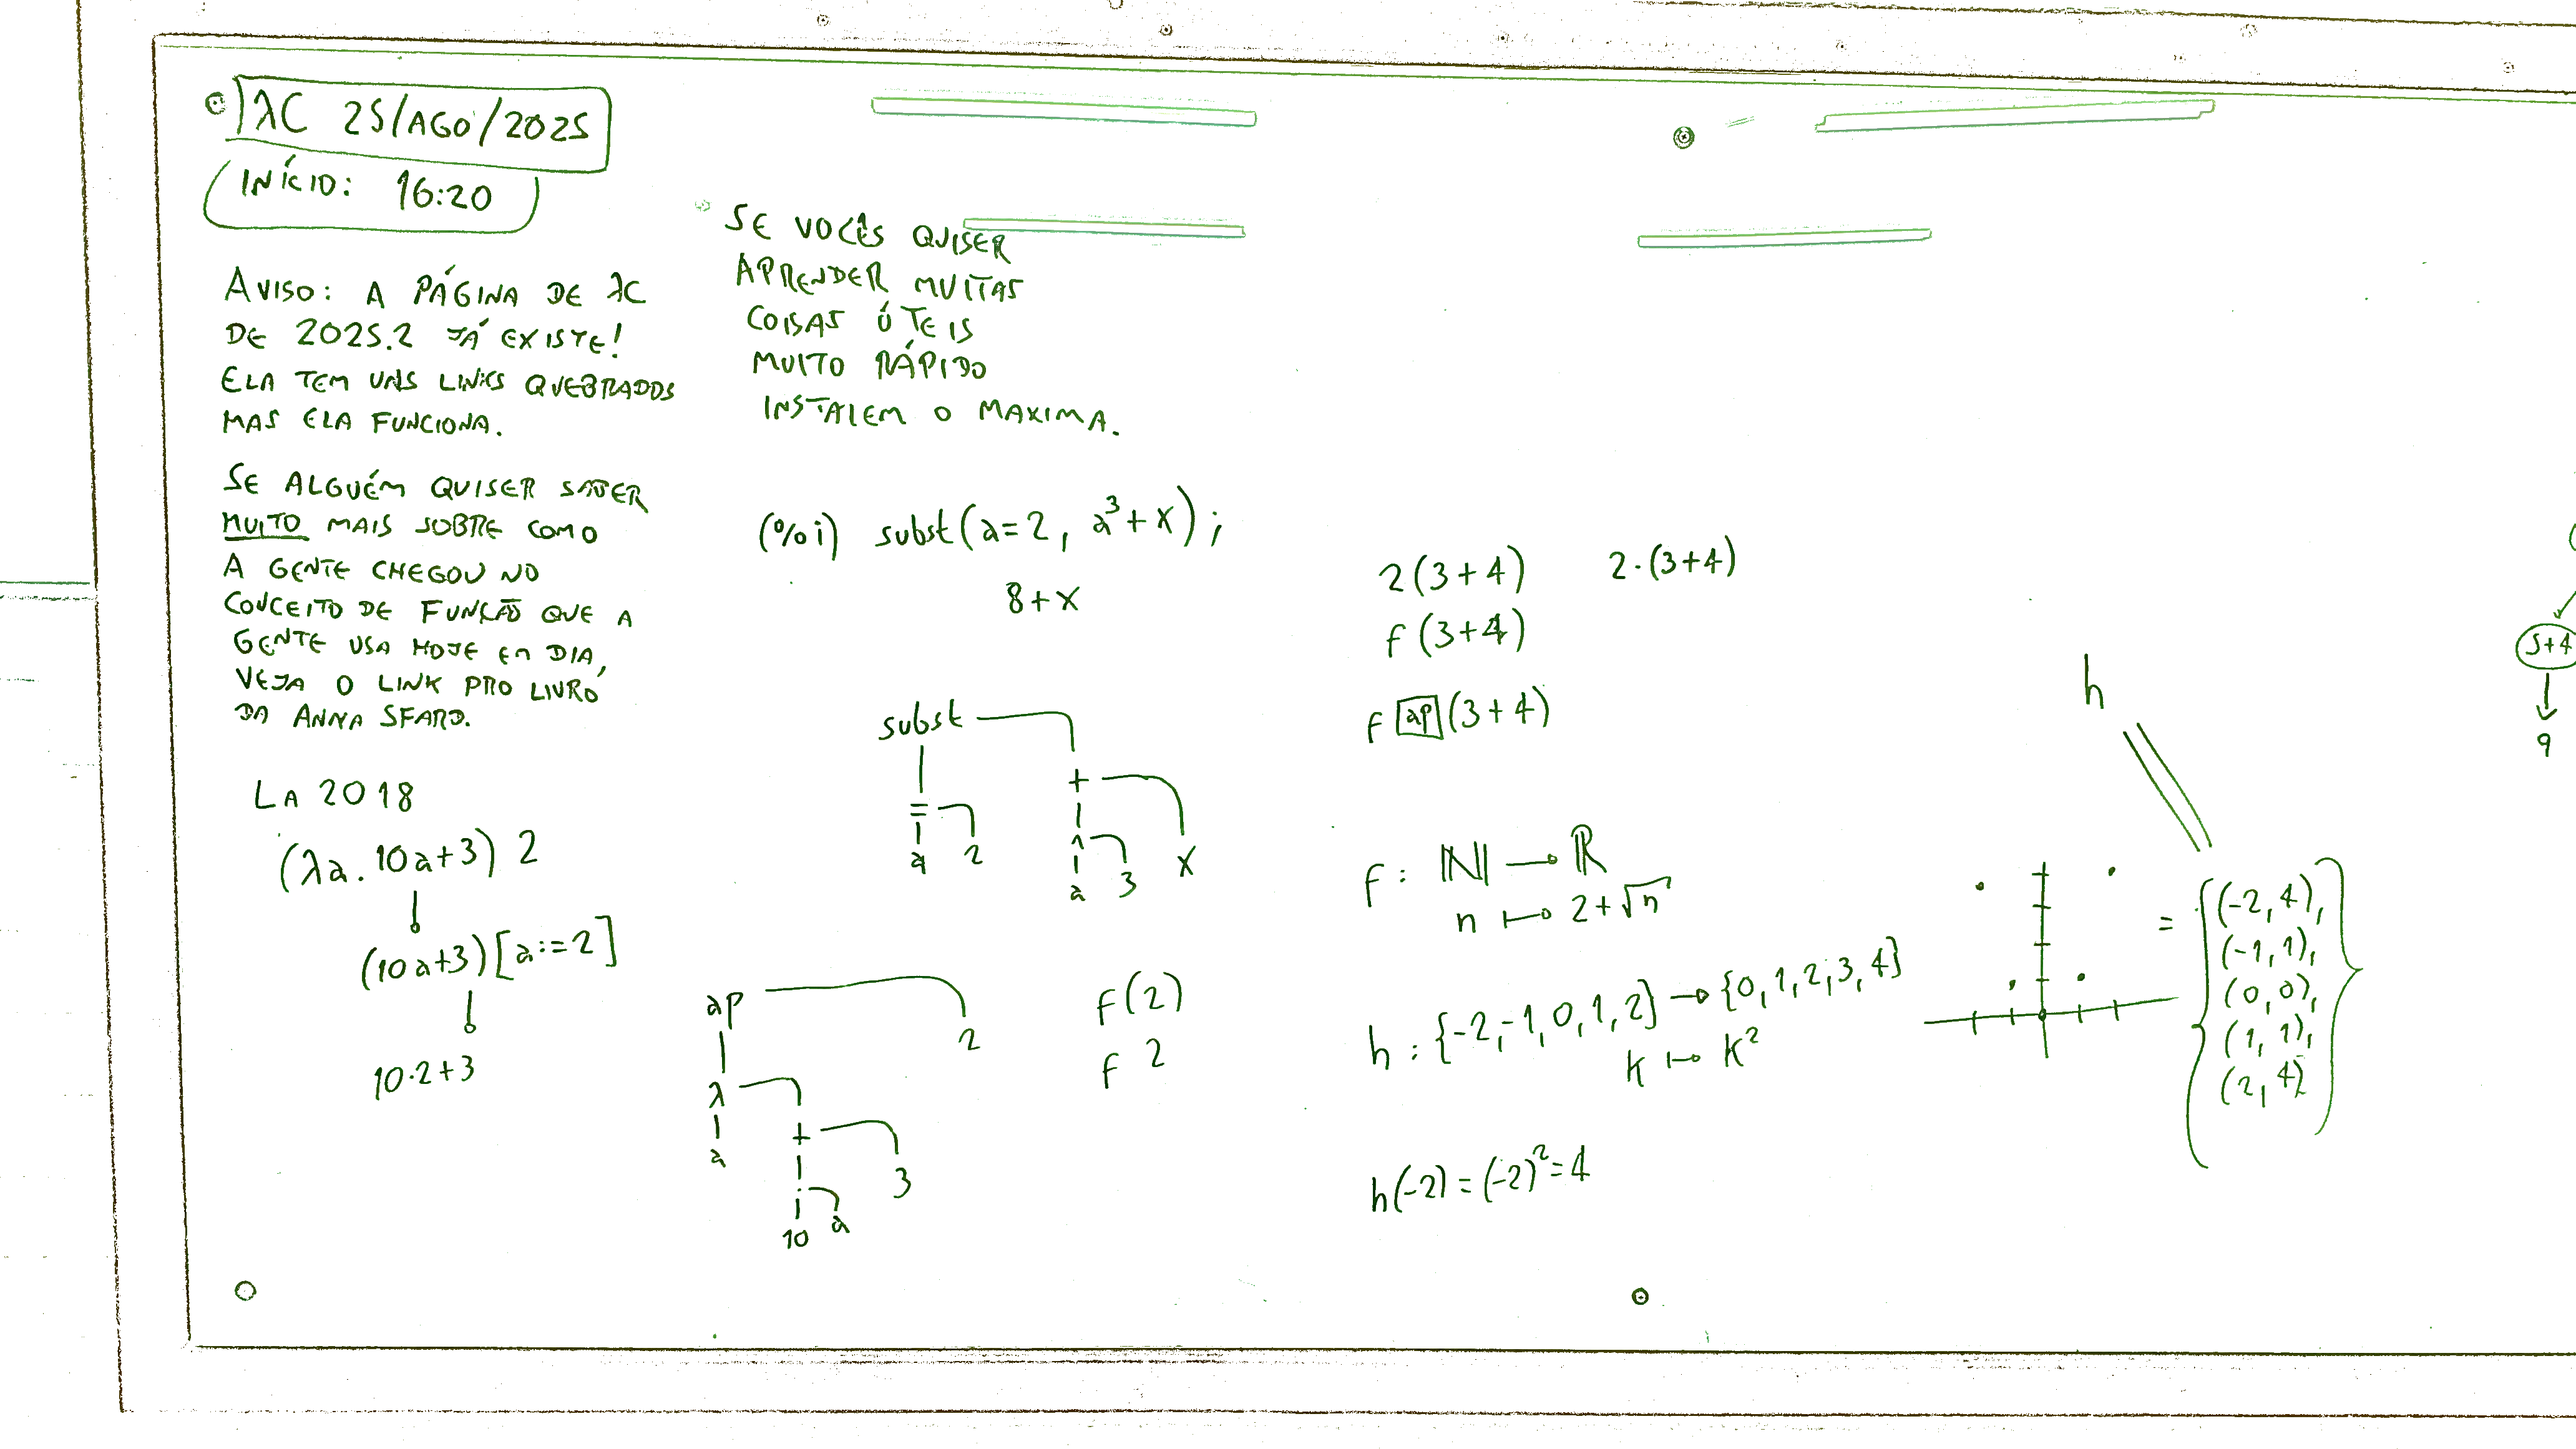 λC 25/AGO/2025
INÍCIO: 16:20
AVISO: A PÁGINA DE λC
DE 2025.2 JÁ EXISTE!
ELA TEM UNS LINKS QUEBRADOS
MAS ELA FUNCIONA.
SE ALGUÉM QUISER SABER
MUITO MAIS SOBRE COMO
A GENTE CHEGOU NO
CONCEITO DE FUNÇÃO QUE A
GENTE USA HOJE EM DIA,
VEJA O LINK PRO LIVRO
DA ANNA SFARD.
LA 2018
(λa. 10a+3) 2
(10a+3)[a:=2]
10·2+3
SE VOCÊS QUISER
APRENDER MUITAS
COISAS ÚTEIS
MUITO RÁPIDO
INSTALEM O MAXIMA.
(%i) subst(a=2, a³+x);
8+x
subst
= +
a 2 ^ x
a 3
ap
2
λ
a + 3
·
10 a
f(2)
f 2
2(3+4) 2·(3+4)
f(3+4)
f ap (3+4)
f: ℕ → ℝ
n ↦ 2+√n
h: {-2,-1,0,1,2} → {0,1,2,3,4}
k ↦ k²
h(-2) = (-2)² = 4
h
= {(-2,4),
(-1,1),
(0,0),
(1,1),
(2,4)}
5+4
9